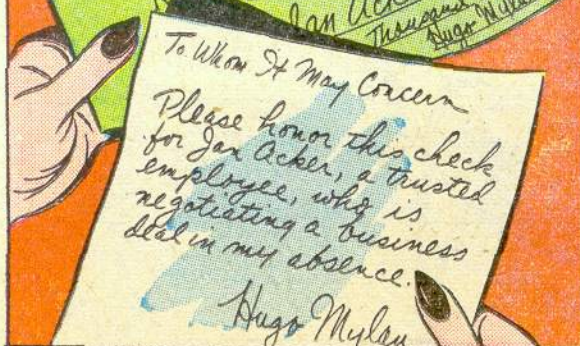 Jan Ack
Thousand
Hugo Mylan
To Whom It May Concern
Please honor this check
for Jan Acker, a trusted
employee, who is
negotiating a business
deal in my absence.
Hugo Mylan